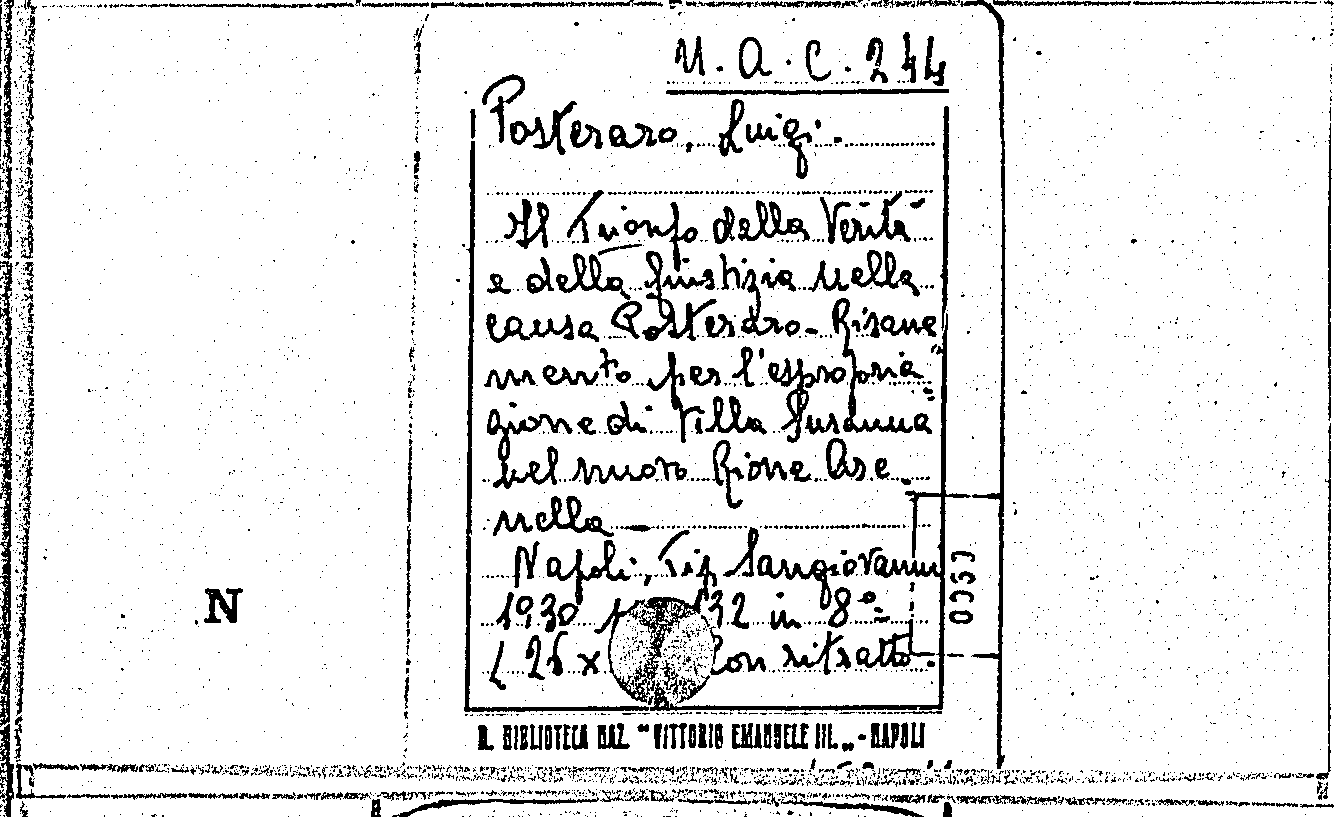 N. A. C. 244
Posteraro, Luigi.
Il Trionfo della Verità
e della Giustizia nella
causa Posteraro-Risane
mento per l'espropria=
zione di Villa Susanna
nel nuovo Rione Are.
nella —
Napoli, Tip. Sangiovanni
1930 132 in 8°=
(26 x con ritratto.
N
R. BIBLIOTECA NAZ. "VITTORIO EMANUELE III." - NAPOLI